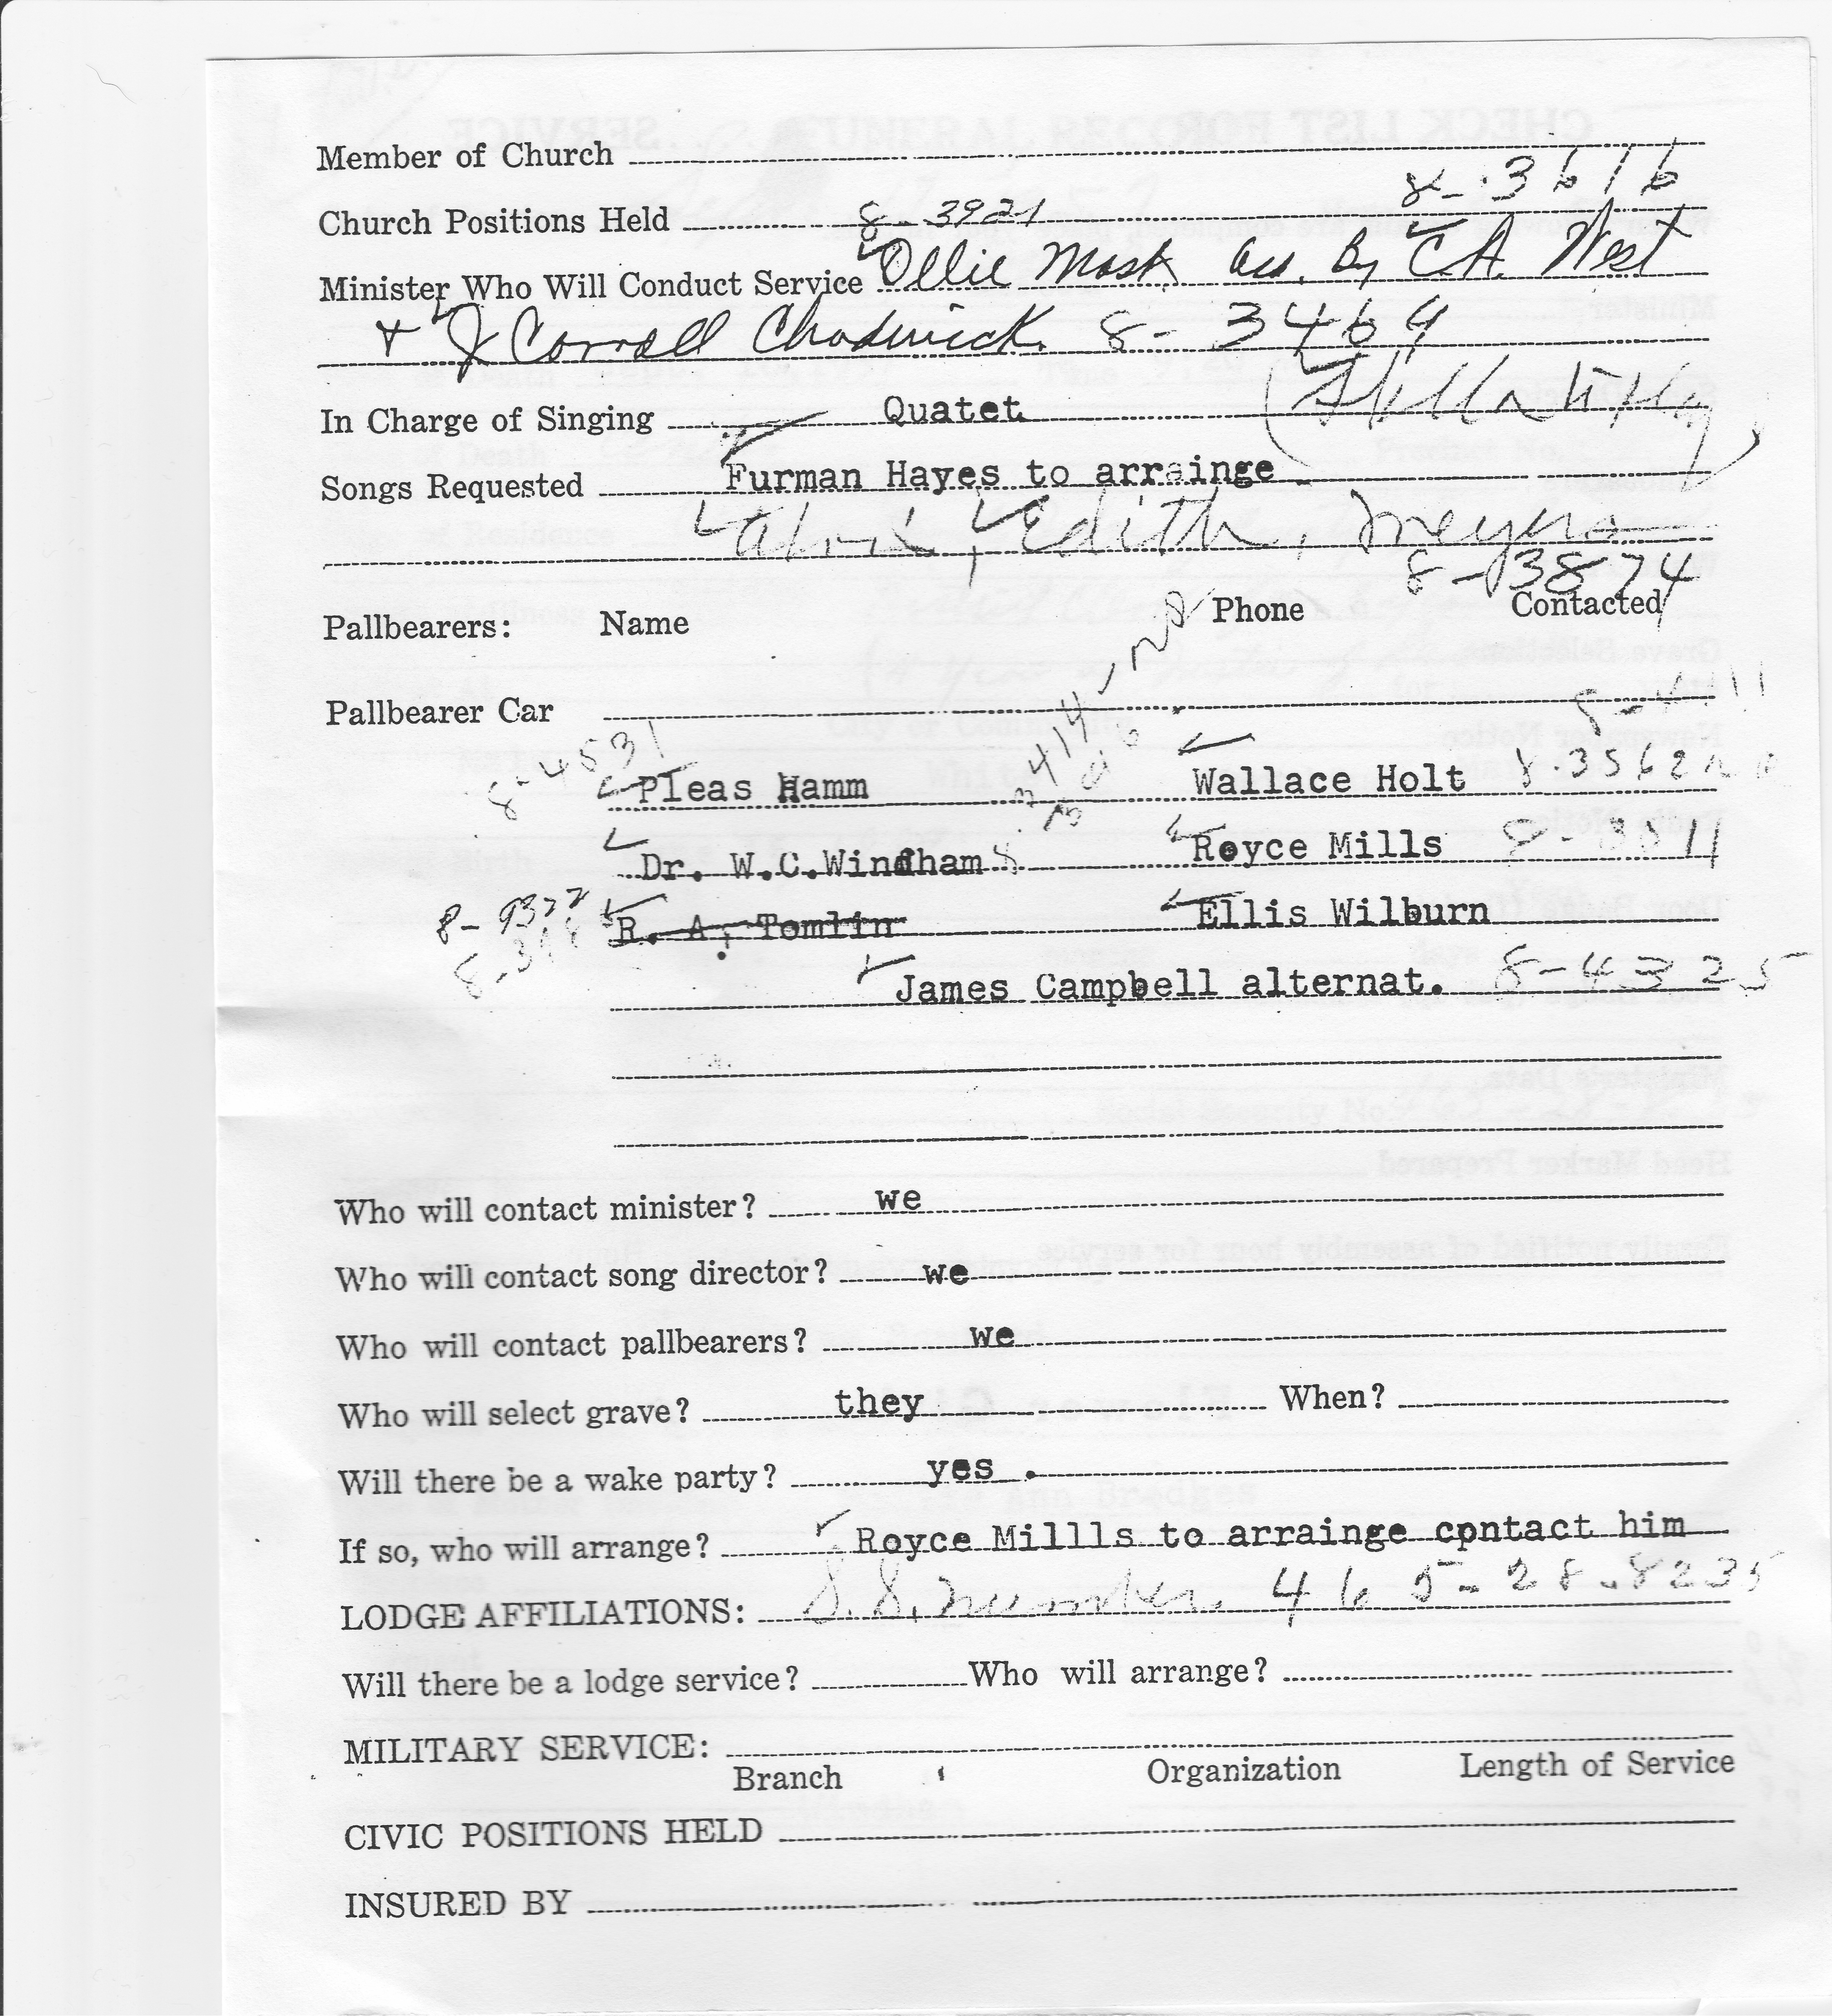 Member of Church
8-3616
Church Positions Held 8-3921
Minister Who Will Conduct Service Ollie Mask Ass. By C.A. West
+ J Corroll Chadwick. 8-3464
In Charge of Singing Quatet
Songs Requested Furman Hayes to arrainge
Edith, Meyers
8-3874
Pallbearers: Name Phone Contacted
Pallbearer Car
8-4531 Pleas Hamm Wallace Holt 8-3562
Dr. W.C.Windham 8 Royce Mills 8-3511
8-9377 R. A. Tomlin Ellis Wilburn
James Campbell alternat. 8-4325
Who will contact minister? we
Who will contact song director? we
Who will contact pallbearers? we
Who will select grave? they When?
Will there be a wake party? yes .
If so, who will arrange? Royce Millls to arrainge cpntact him
LODGE AFFILIATIONS: S.S. number 465-28-8235
Will there be a lodge service? Who will arrange?
MILITARY SERVICE:
Branch Organization Length of Service
CIVIC POSITIONS HELD
INSURED BY